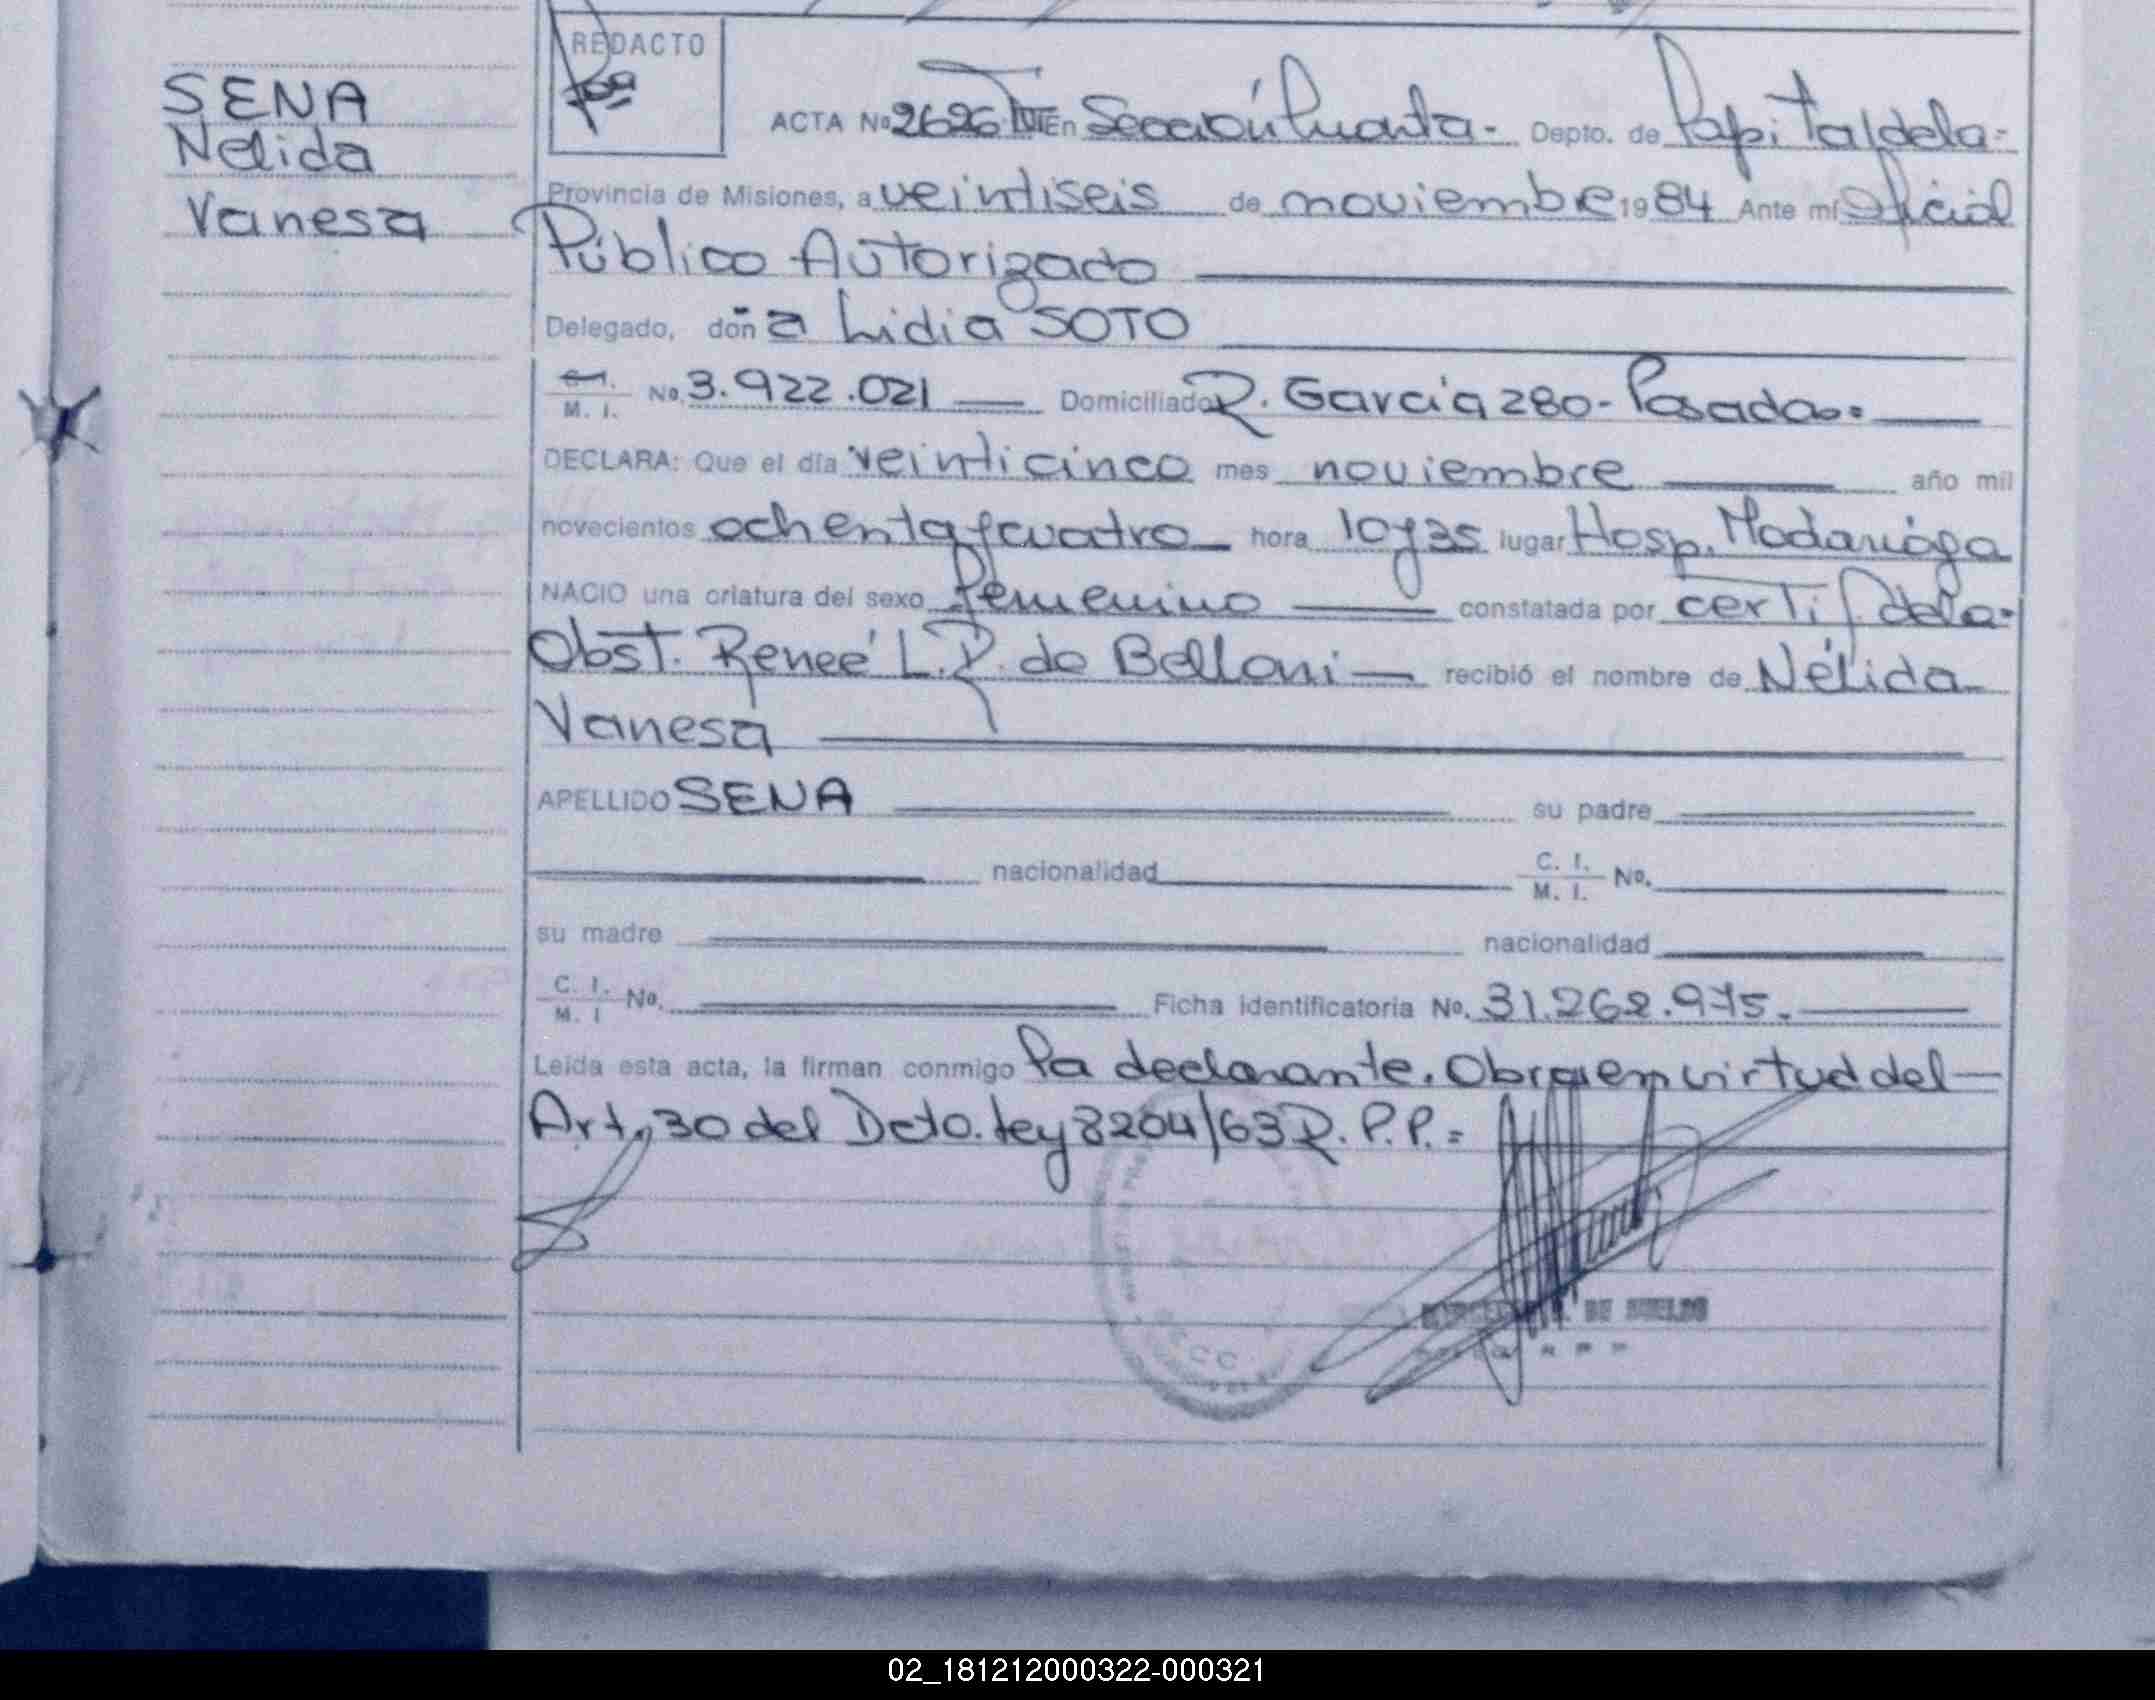 SENA
Nélida
Vanesa
REDACTO
ACTA No 2626 TºIII En Sección Cuarta- Depto. de Capital de la-
Provincia de Misiones, a veintiseis de noviembre 1984 Ante mí Oficial
Público Autorizado
Delegado, don a Lidia SOTO
M. I. No. 3.922.021 Domiciliado R. García 280- Posadas.
DECLARA: Que el día veinticinco mes noviembre año mil
novecientos ochenta y cuatro hora 10 y 35 lugar Hosp. Madariaga
NACIO una criatura del sexo femenino constatada por certif de la-
Obst. Reneé L. R. de Belloni recibió el nombre de Nélida
Vanesa
APELLIDO SENA su padre
nacionalidad C. I. M. I. No.
su madre nacionalidad
C. I. M. I No. Ficha identificatoria No. 31.262.975.
Leída esta acta, la firman conmigo la declarante. Obra en virtud del
Art. 30 del Dcto. Ley 8204/63 R. P. P. =
DE
02_181212000322-000321